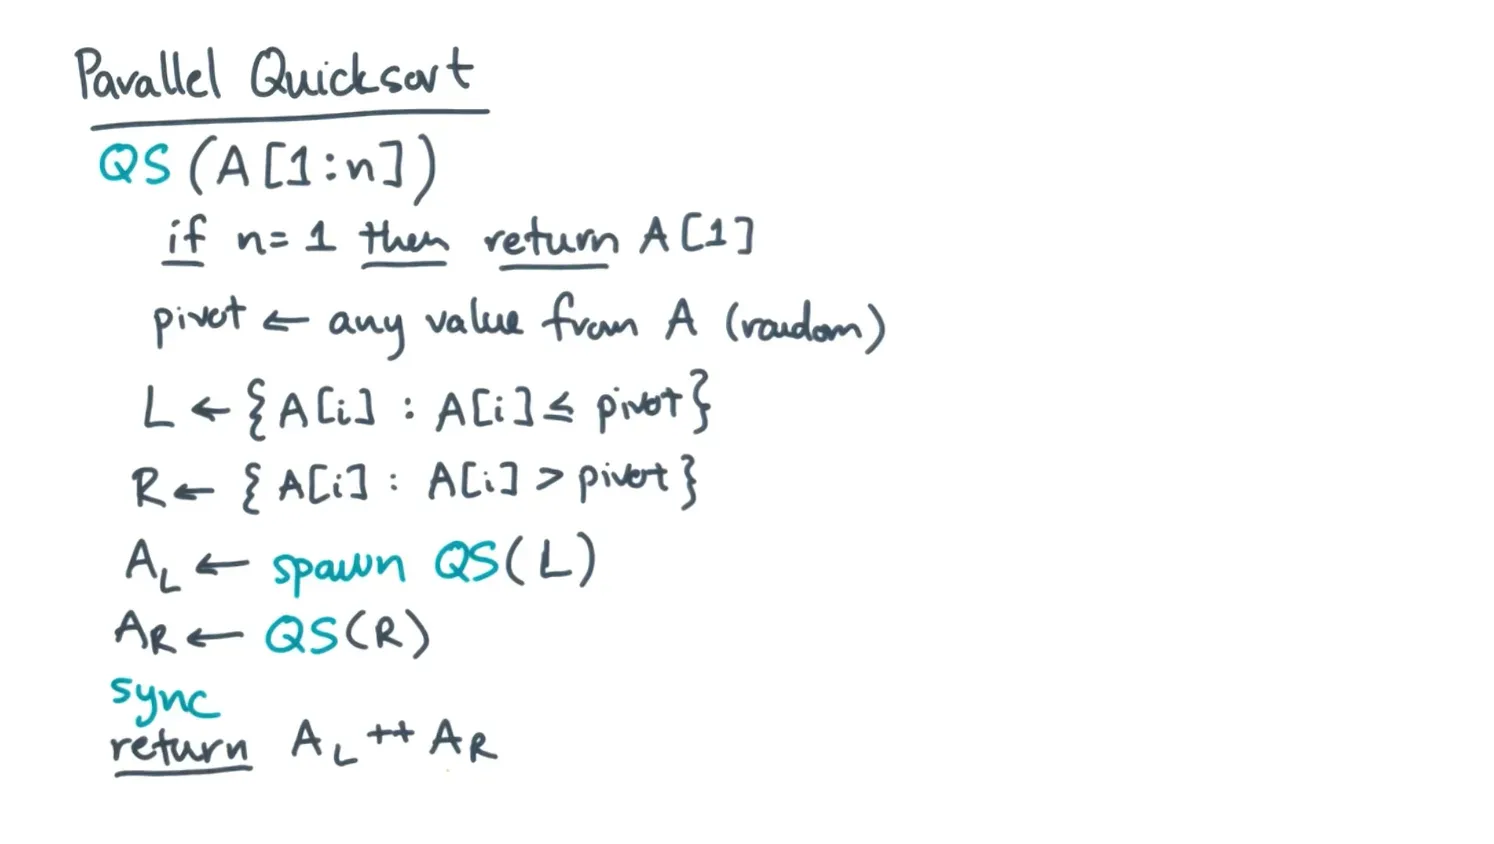 Parallel Quicksort
QS (A[1:n])
if n=1 then return A[1]
pivot ← any value from A (random)
L ← {A[i] : A[i] ≤ pivot}
R ← {A[i] : A[i] > pivot}
A_L ← spawn QS(L)
A_R ← QS(R)
sync
return A_L ++ A_R